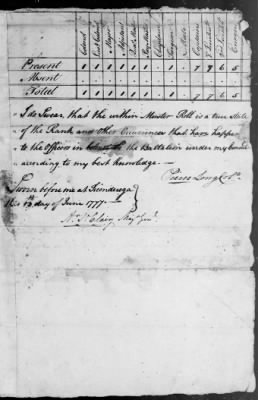 Colonel Lieut Colonel Major Adjutant Quar Mast Pay Master Chaplain Surgeon Mate Captains 1 Lieuts 2 Lieuts Ensigns
Present 1 1 1 1 1 1 1 1 7 7 6 5
Absent
Total 1 1 1 1 1 1 1 7 7 6 5
I do Swear that the within Muster Roll is a true State
of the Rank and other Occurrences that have happen
to the Officers in the Battalion under my Comand
according to my best knowledge
Pierse Long Colo.
Sworn before me at Ticonderoga
this day of June 1777
Ar. St. Clair Maj Genl.